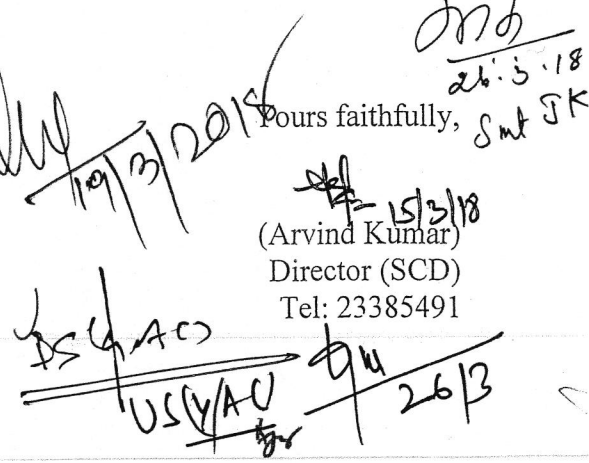 26.3.18
Smt JK
19/3/2018
Yours faithfully,
15/3/18
(Arvind Kumar)
Director (SCD)
Tel: 23385491
26/3